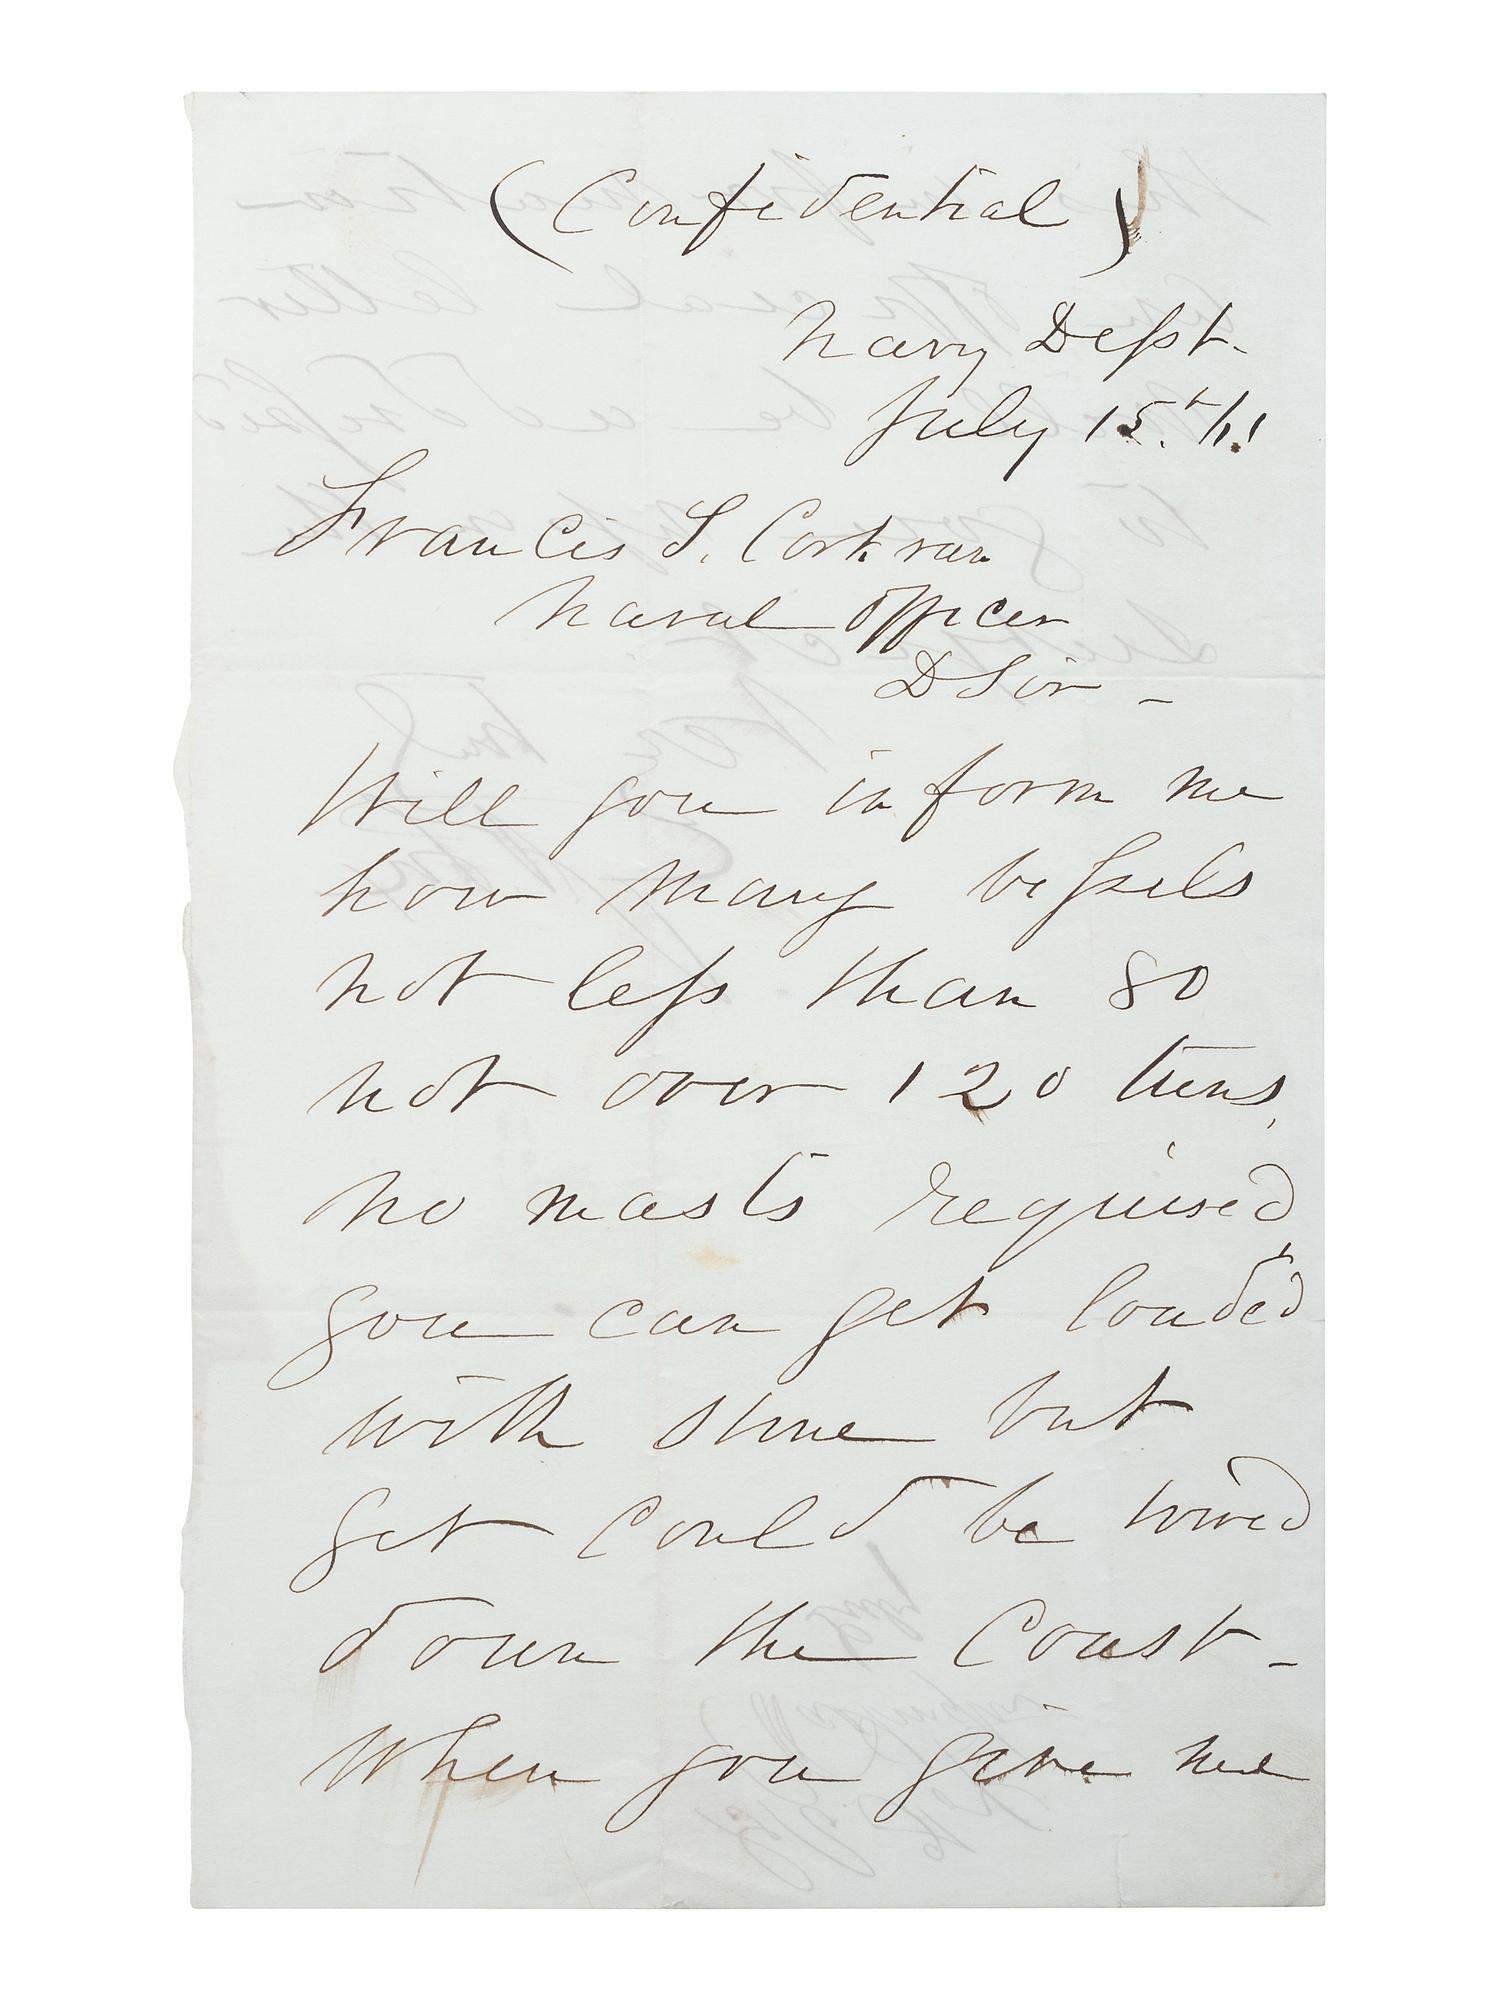 (Confidential)
Navy Dept.
July 15th/61
Francis S. Corkran
Naval Officer
D Sir -
Will you inform me
how many vessels
not less than 80
not over 120 tuns,
no masts required
you can get loaded
with stone but
yet could be towed
down the Coast -
When you give me